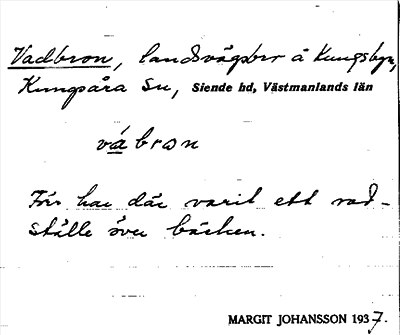 Vadbron, landsvägsbr å Kungsbyn,
Kungsåra sn, Siende hd, Västmanlands län
vábron
Förr har där varit ett vad-
ställe över bäcken.
MARGIT JOHANSSON 1937.